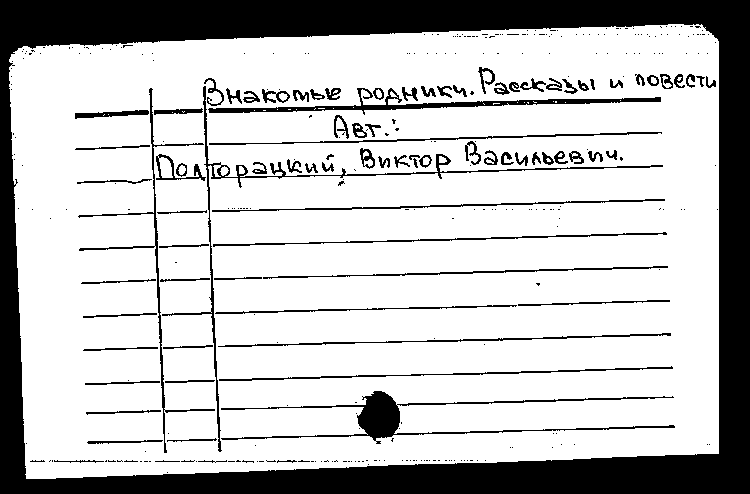 Знакомые родники. Рассказы и повести
Авт.:
Полторацкий, Виктор Васильевич.